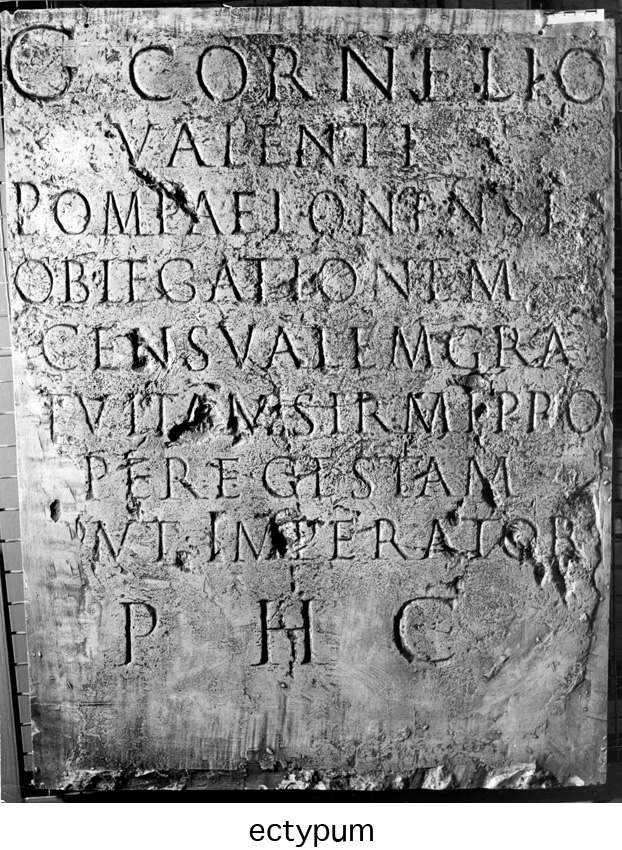 G CORNELIO
VALENTI
POMPAELONENSI
OB LEGATIONEM
CENSVALEM GRA
TVITAM SIRMI PRO
PERE GESTAM
IMPERATOR
P H C
ectypum